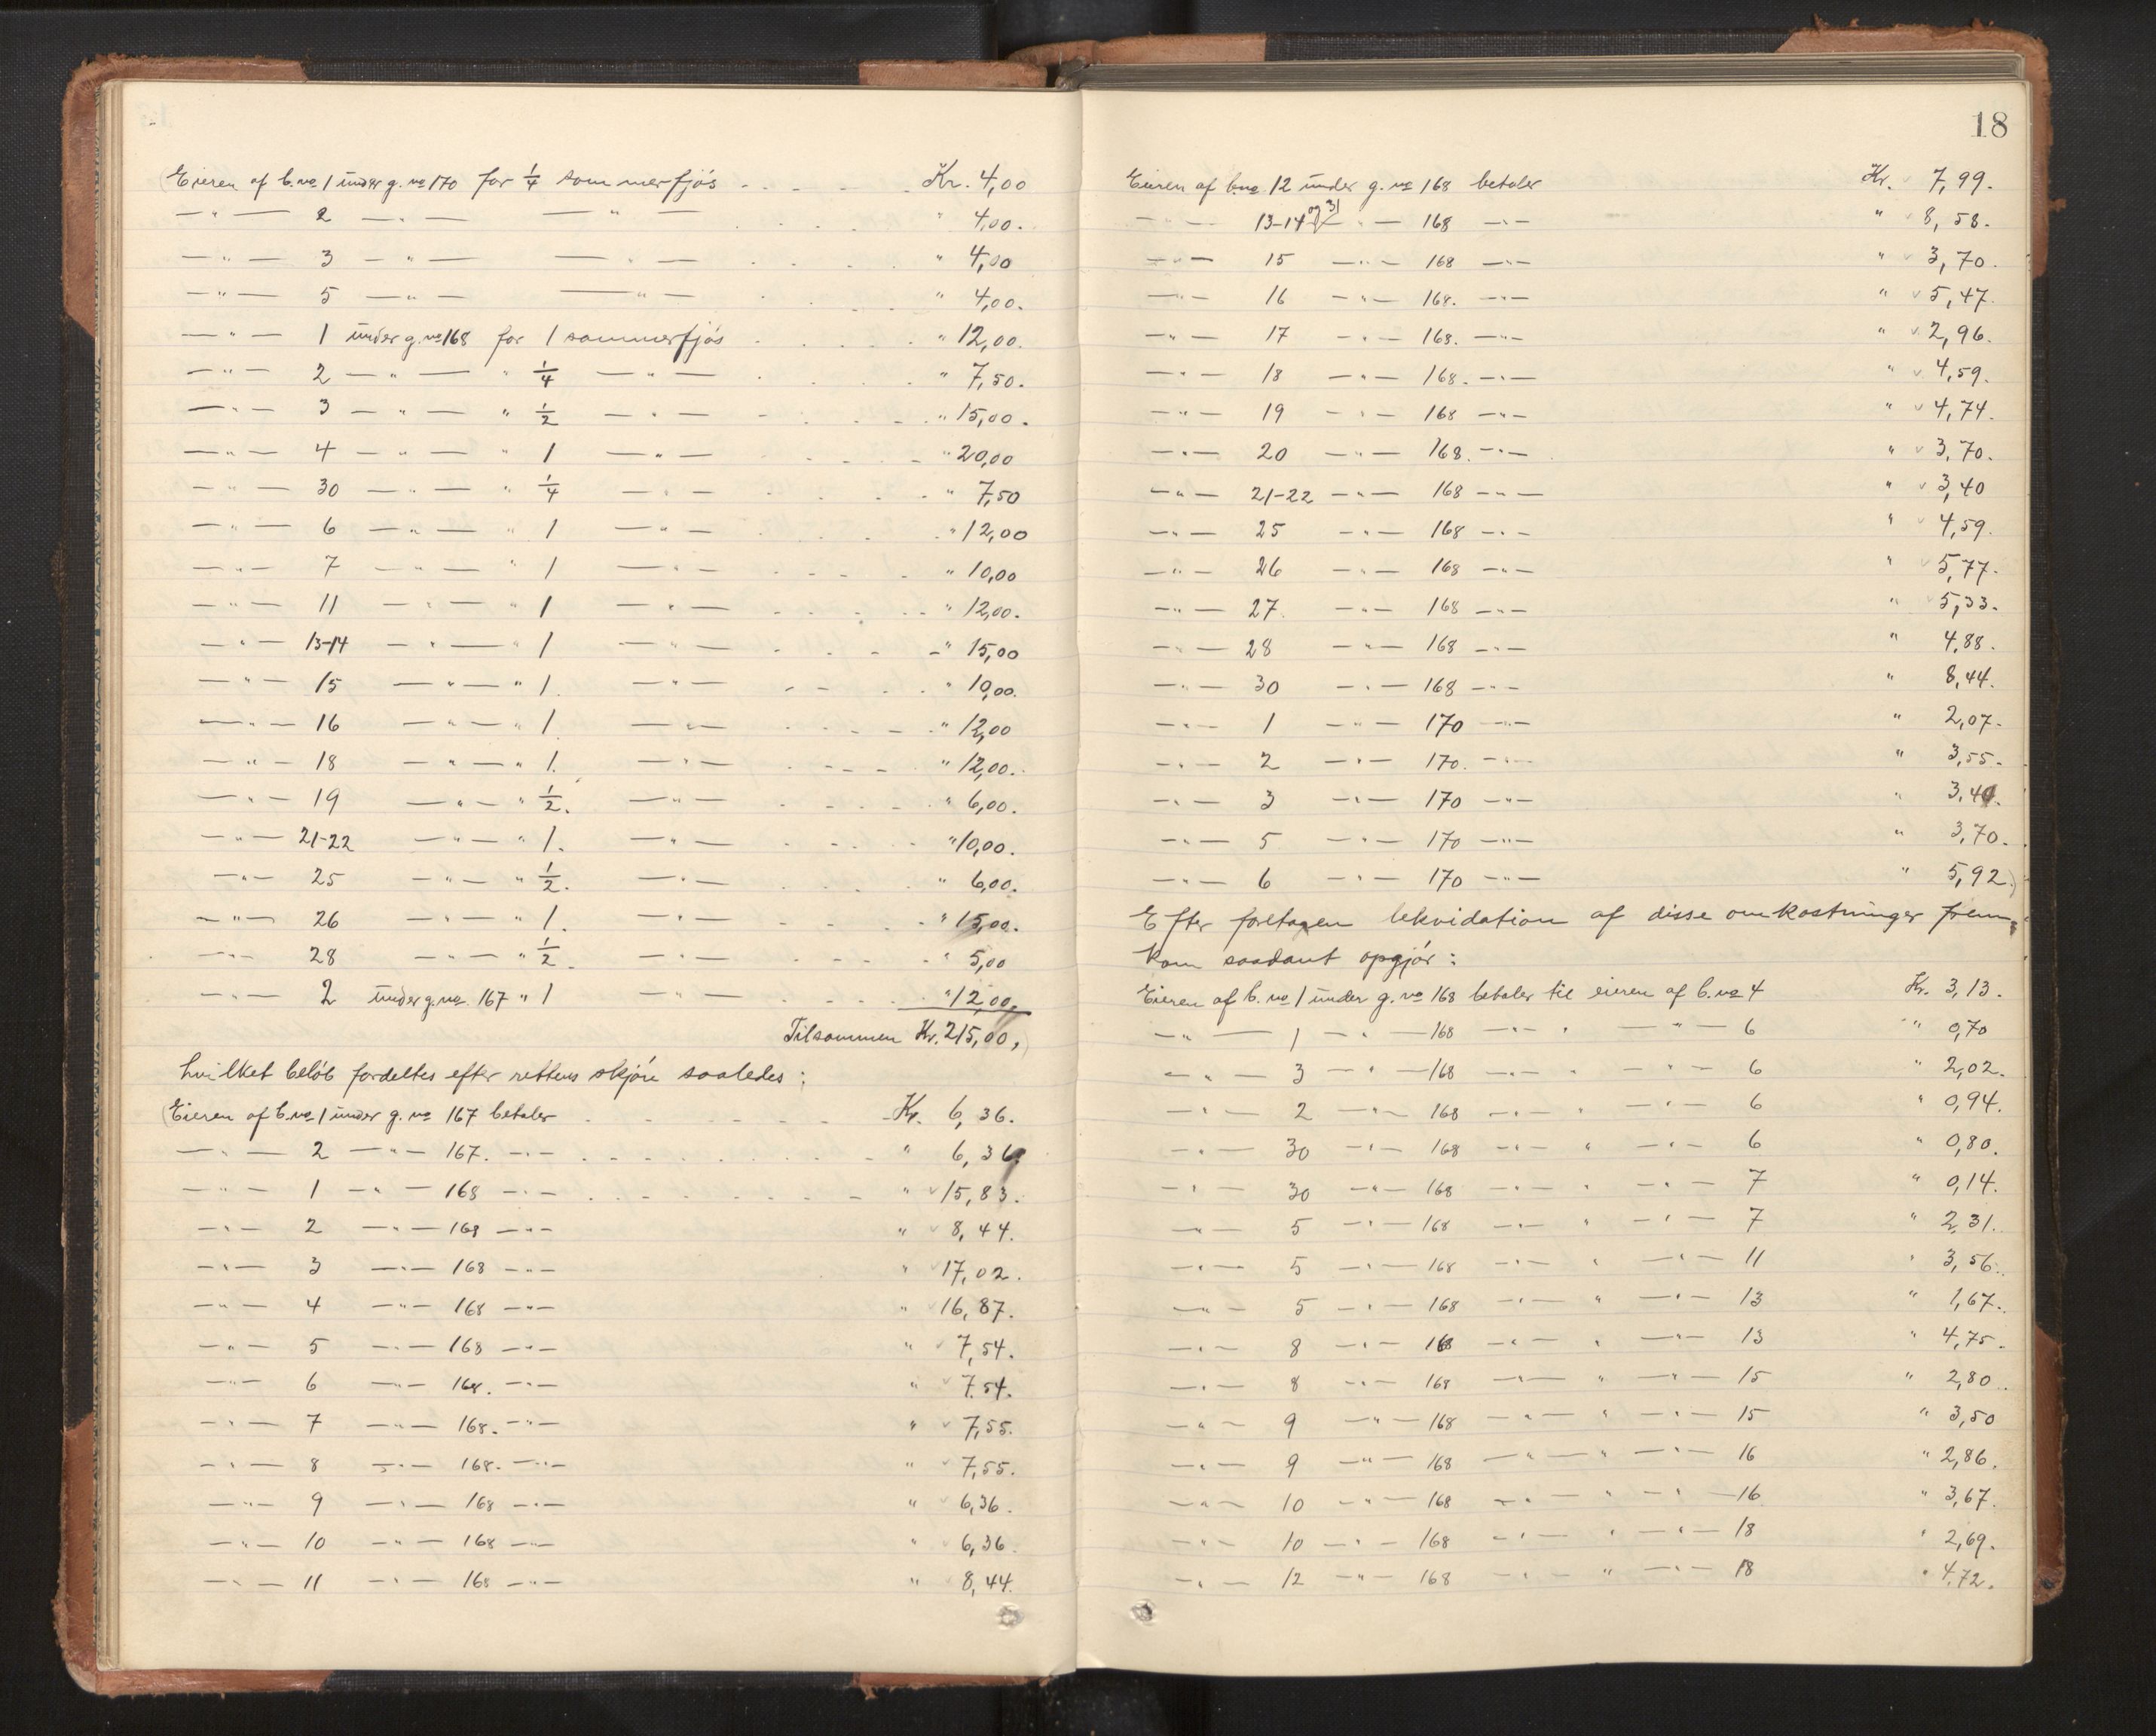 Eieren af b.no 1 under g.no 170 for 1/4 sommerfjøs . . . . . Kr. 4,00
— " — 2 — " — — " — . . . " 4,00.
— " — 3 — " — — " — . . . " 4,00
— " — 5 — " — — " — . . . " 4,00.
— " — 1 under g.no 168 for 1 sommerfjøs . . . . . " 12,00.
— " — 2 — " — " 1/4 — " — . . . " 7,50.
— " — 3 — " — " 1/2 — " — . . . " 15,00.
— " — 4 — " — " 1 — " — . . . " 20,00
— " — 30 — " — " 1/4 — " — . . . " 7,50
— " — 6 — " — " 1 — " — . . . " 12,00
— " — 7 — " — " 1 — " — . . . " 10,00
— " — 11 — " — " 1 — " — . . . " 12,00.
— " — 13-14 — " — " 1 — " — . . . " 15,00
— " — 15 — " — " 1. — " — . . . " 10,00.
— " — 16 — " — " 1. — " — . . . " 12,00
— " — 18 — " — " 1. — " — . . . " 12,00.
— " — 19 — " — " 1/2. — " — . . . " 6,00.
— " — 21-22 — " — " 1. — " — . . . " 10,00.
— " — 25 — " — " 1/2. — " — . . . " 6,00.
— " — 26 — " — " 1. — " — . . . " 15,00.
— " — 28 — " — " 1/2. — " — . . . " 5,00
— " — 2 under g.no. 167 " 1 — " — . . . " 12,00.
Tilsammen Kr. 215,00,)
hvilket beløb fordeltes efter rettens skjøn saaledes:
(Eieren af b.no 1 under g.no 167 betaler . . . . . Kr. 6,36.
— " — 2 — " — 167. — " — . . . . . " 6,36.
— " — 1 — " — 168 — " — . . . . . " 15,83.
— " — 2 — " — 168 — " — " 8,44.
— " — 3 — " — 168 — " — " 17,02.
— " — 4 — " — 168 — " — " 16,87.
— " — 5 — " — 168 — " — " 7,54.
— " — 6 — " — 168. — " — " 7.54.
— " — 7 — " — 168. — " — " 7,55.
— " — 8 — " — 168. — " — " 7,55.
— " — 9 — " — 168 — " — " 6,36.
— " — 10 — " — 168 — " — " 6,36.
— " — 11 — " — 168 — " — " 8,44.
18
Eieren af b.no 12 under g.no 168 betaler Kr. 7,99.
— " — 13-14 og 31 — " — 168 — " — " 8,58.
— " — 15 — " — 168 — " — " 3,70.
— " — 16 — " — 168. — " — " 5,47.
— " — 17 — " — 168. — " — " 2,96.
— " — 18 — " — 168. — " — " 4,59.
— " — 19 — " — 168 — " — " 4,74.
— " — 20 — " — 168. — " — " 3,70.
— " — 21-22 — " — 168 — " — " 3,40
— " — 25 — " — 168 — " — " 4,59.
— " — 26 — " — 168 — " — " 5,77.
— " — 27. — " — 168 — " — " 5,33.
— " — 28 — " — 168 — " — " 4,88.
— " — 30 — " — 168 — " — " 8,44.
— " — 1 — " — 170 — " — " 2,07.
— " — 2 — " — 170. — " — " 3,55.
— " — 3 — " — 170 — " — " 3,40.
— " — 5 — " — 170 — " — " 3,70.
— " — 6 — " — 170 — " — " 5,92.)
Efter foretagen lekvidation af disse omkostninger frem-
kom saadant opgjør:
Eieren af b.no 1 under g.no 168 betaler til eieren af b.no 4 Kr. 3,13.
— " — 1 — " — 168 — " — " — " — 6 " 0,70
— " — 3 — " — 168 — " — " — " — 6 " 2,02.
— " — 2 — " — 168 — " — " — " — 6 " 0,94.
— " — 30 — " — 168 — " — " — " — 6 " 0,80.
— " — 30 — " — 168 — " — " — " — 7 " 0,14.
— " — 5 — " — 168 — " — " — " — 7 " 2,31.
— " — 5 — " — 168 — " — " — " — 11 " 3,56.
— " — 5 — " — 168 — " — " — " — 13 " 1,67.
— " — 8 — " — 168 — " — " — " — 13 " 4,75.
— " — 8 — " — 168 — " — " — " — 15 " 2,80.
— " — 9 — " — 168 — " — " — " — 15 " 3,50
— " — 9 — " — 168 — " — " — " — 16 " 2,86.
— " — 10 — " — 168 — " — " — " — 16 " 3,67.
— " — 10 — " — 168 — " — " — " — 18 " 2,69.
— " — 12 — " — 168 — " — " — " — 18 " 4,72.